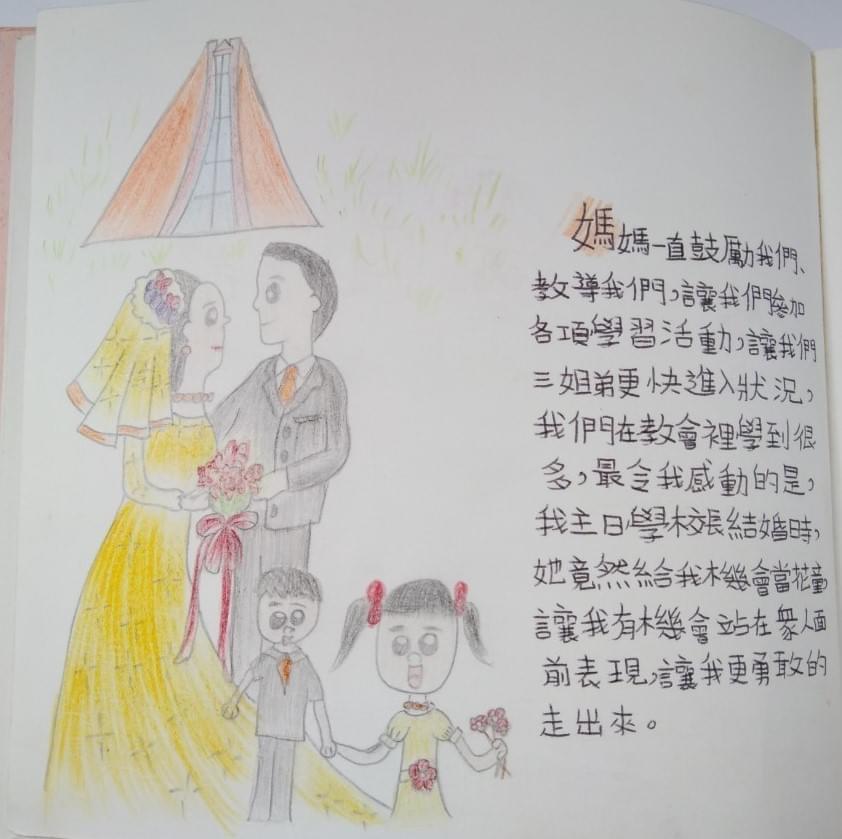 媽媽一直鼓勵我們、
教導我們,讓我們參加
各項學習活動,讓我們
三姐弟更快進入狀況,
我們在教會裡學到很
多,最令我感動的是,
我主日學校長結婚時,
她竟然給我機會當花童,
讓我有機會站在眾人面
前表現,讓我更勇敢的
走出來。